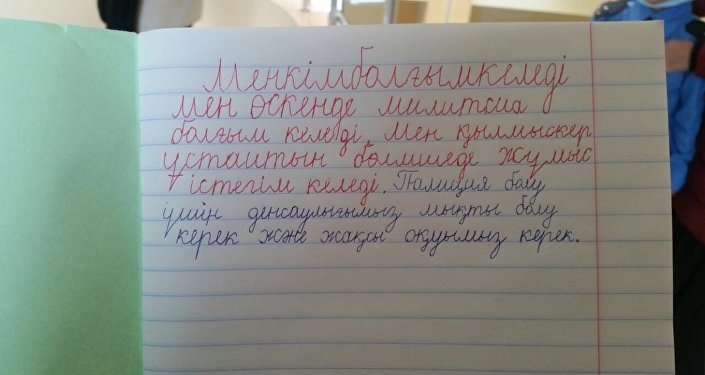 Менкімболғымкеледі
Мен өскенде милитсиа
болғым келеді. Мен қылмыскер
ұстайтын бөлмшеде жұмыс
істегім келеді. Палиция болу
үшін денсаулығымыз мықты болу
керек және жақсы оқуымыз керек.